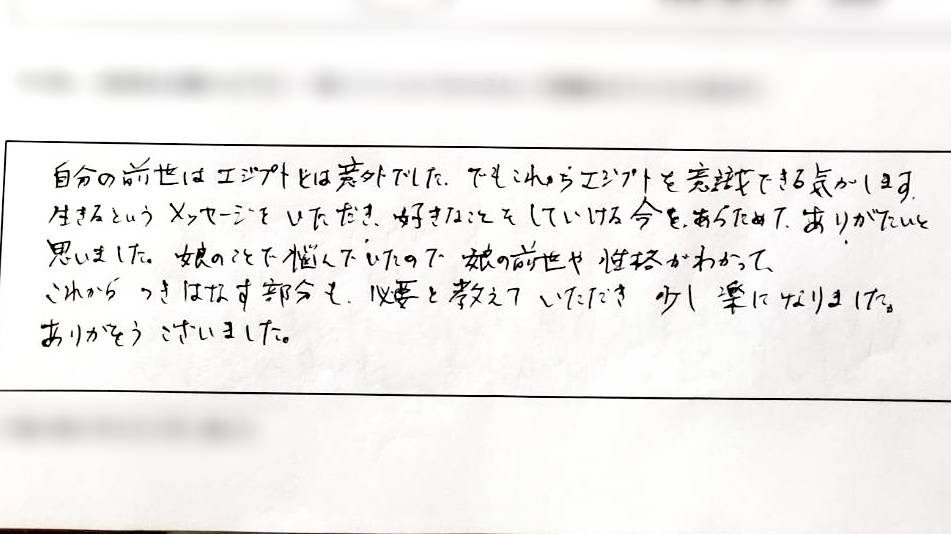 自分の前世はエジプトとは意外でした。でもこれからエジプトを意識できる気がします。
生きるというメッセージをいただき、好きなことをしていける今を、あらためて、ありがたいと
思いました。娘のことで悩んでいたので娘の前世や性格がわかって、
これからつきはなす部分も、必要と教えていただき少し楽になりました。
ありがとうございました。